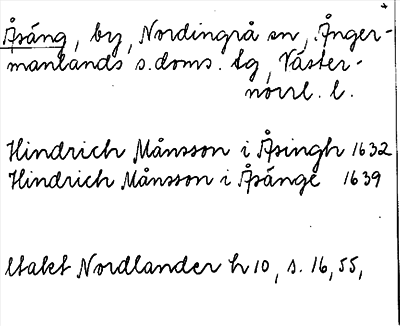 Åsäng, by, Nordingrå sn, Ånger-
manlands s.doms. tg, Väster-
norrl. l.
Hindrich Månsson i Åsingh 1632
Hindrich Månsson i Åsänge 1639
Utakt Nordlander h 10, s. 16, 55,